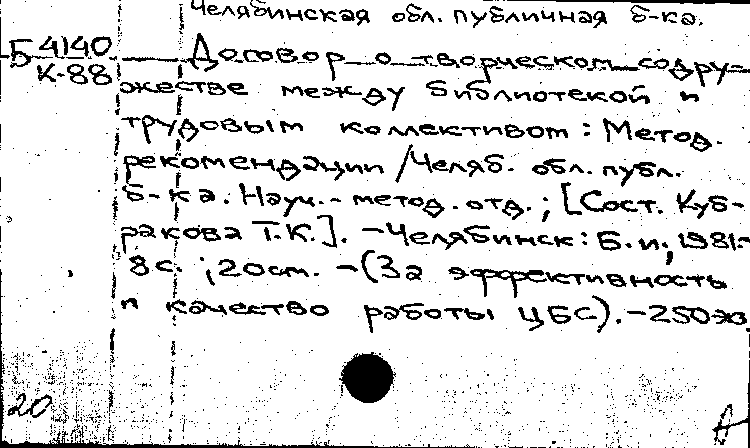 Челябинская обл. публичная б-ка.
Б 4140
К-88
Договор о творческом содру-
жестве между библиотекой и
трудовым коллективом : Метод.
рекомендации / Челяб. обл. публ.
б-ка. Науч.- метод. отд. ; [Сост. Куб-
ракова Т.К.]. - Челябинск : Б. и., 1981.-
8с. ; 20см. - (За эффективность
и качество работы ЦБС). - 250экз.
20